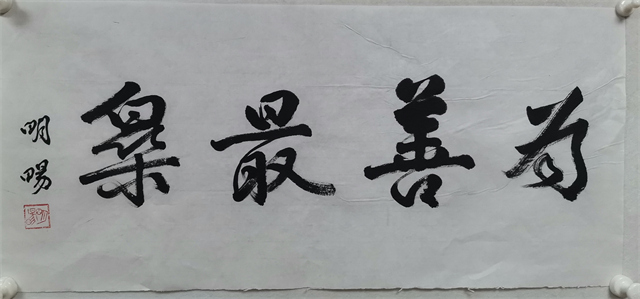 为善最樂
明暘